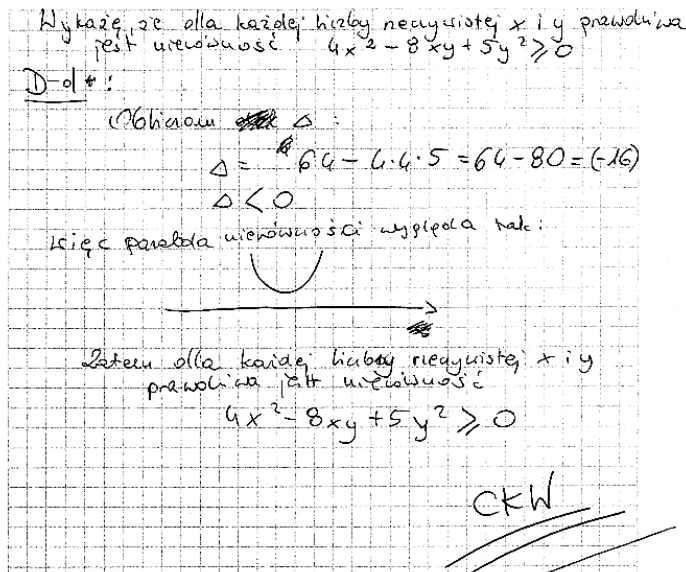 Wykażę, że dla każdej liczby rzeczywistej x i y prawdziwa
jest nierówność 4x² - 8xy + 5y² ≥ 0
D-d:
Obliczam Δ :
Δ = 64 - 4·4·5 = 64 - 80 = (-16)
Δ < 0
więc parabola nierówności wygląda tak:
Zatem dla każdej liczby rzeczywistej x i y
prawdziwa jest nierówność
4x² - 8xy + 5y² ≥ 0
CKW